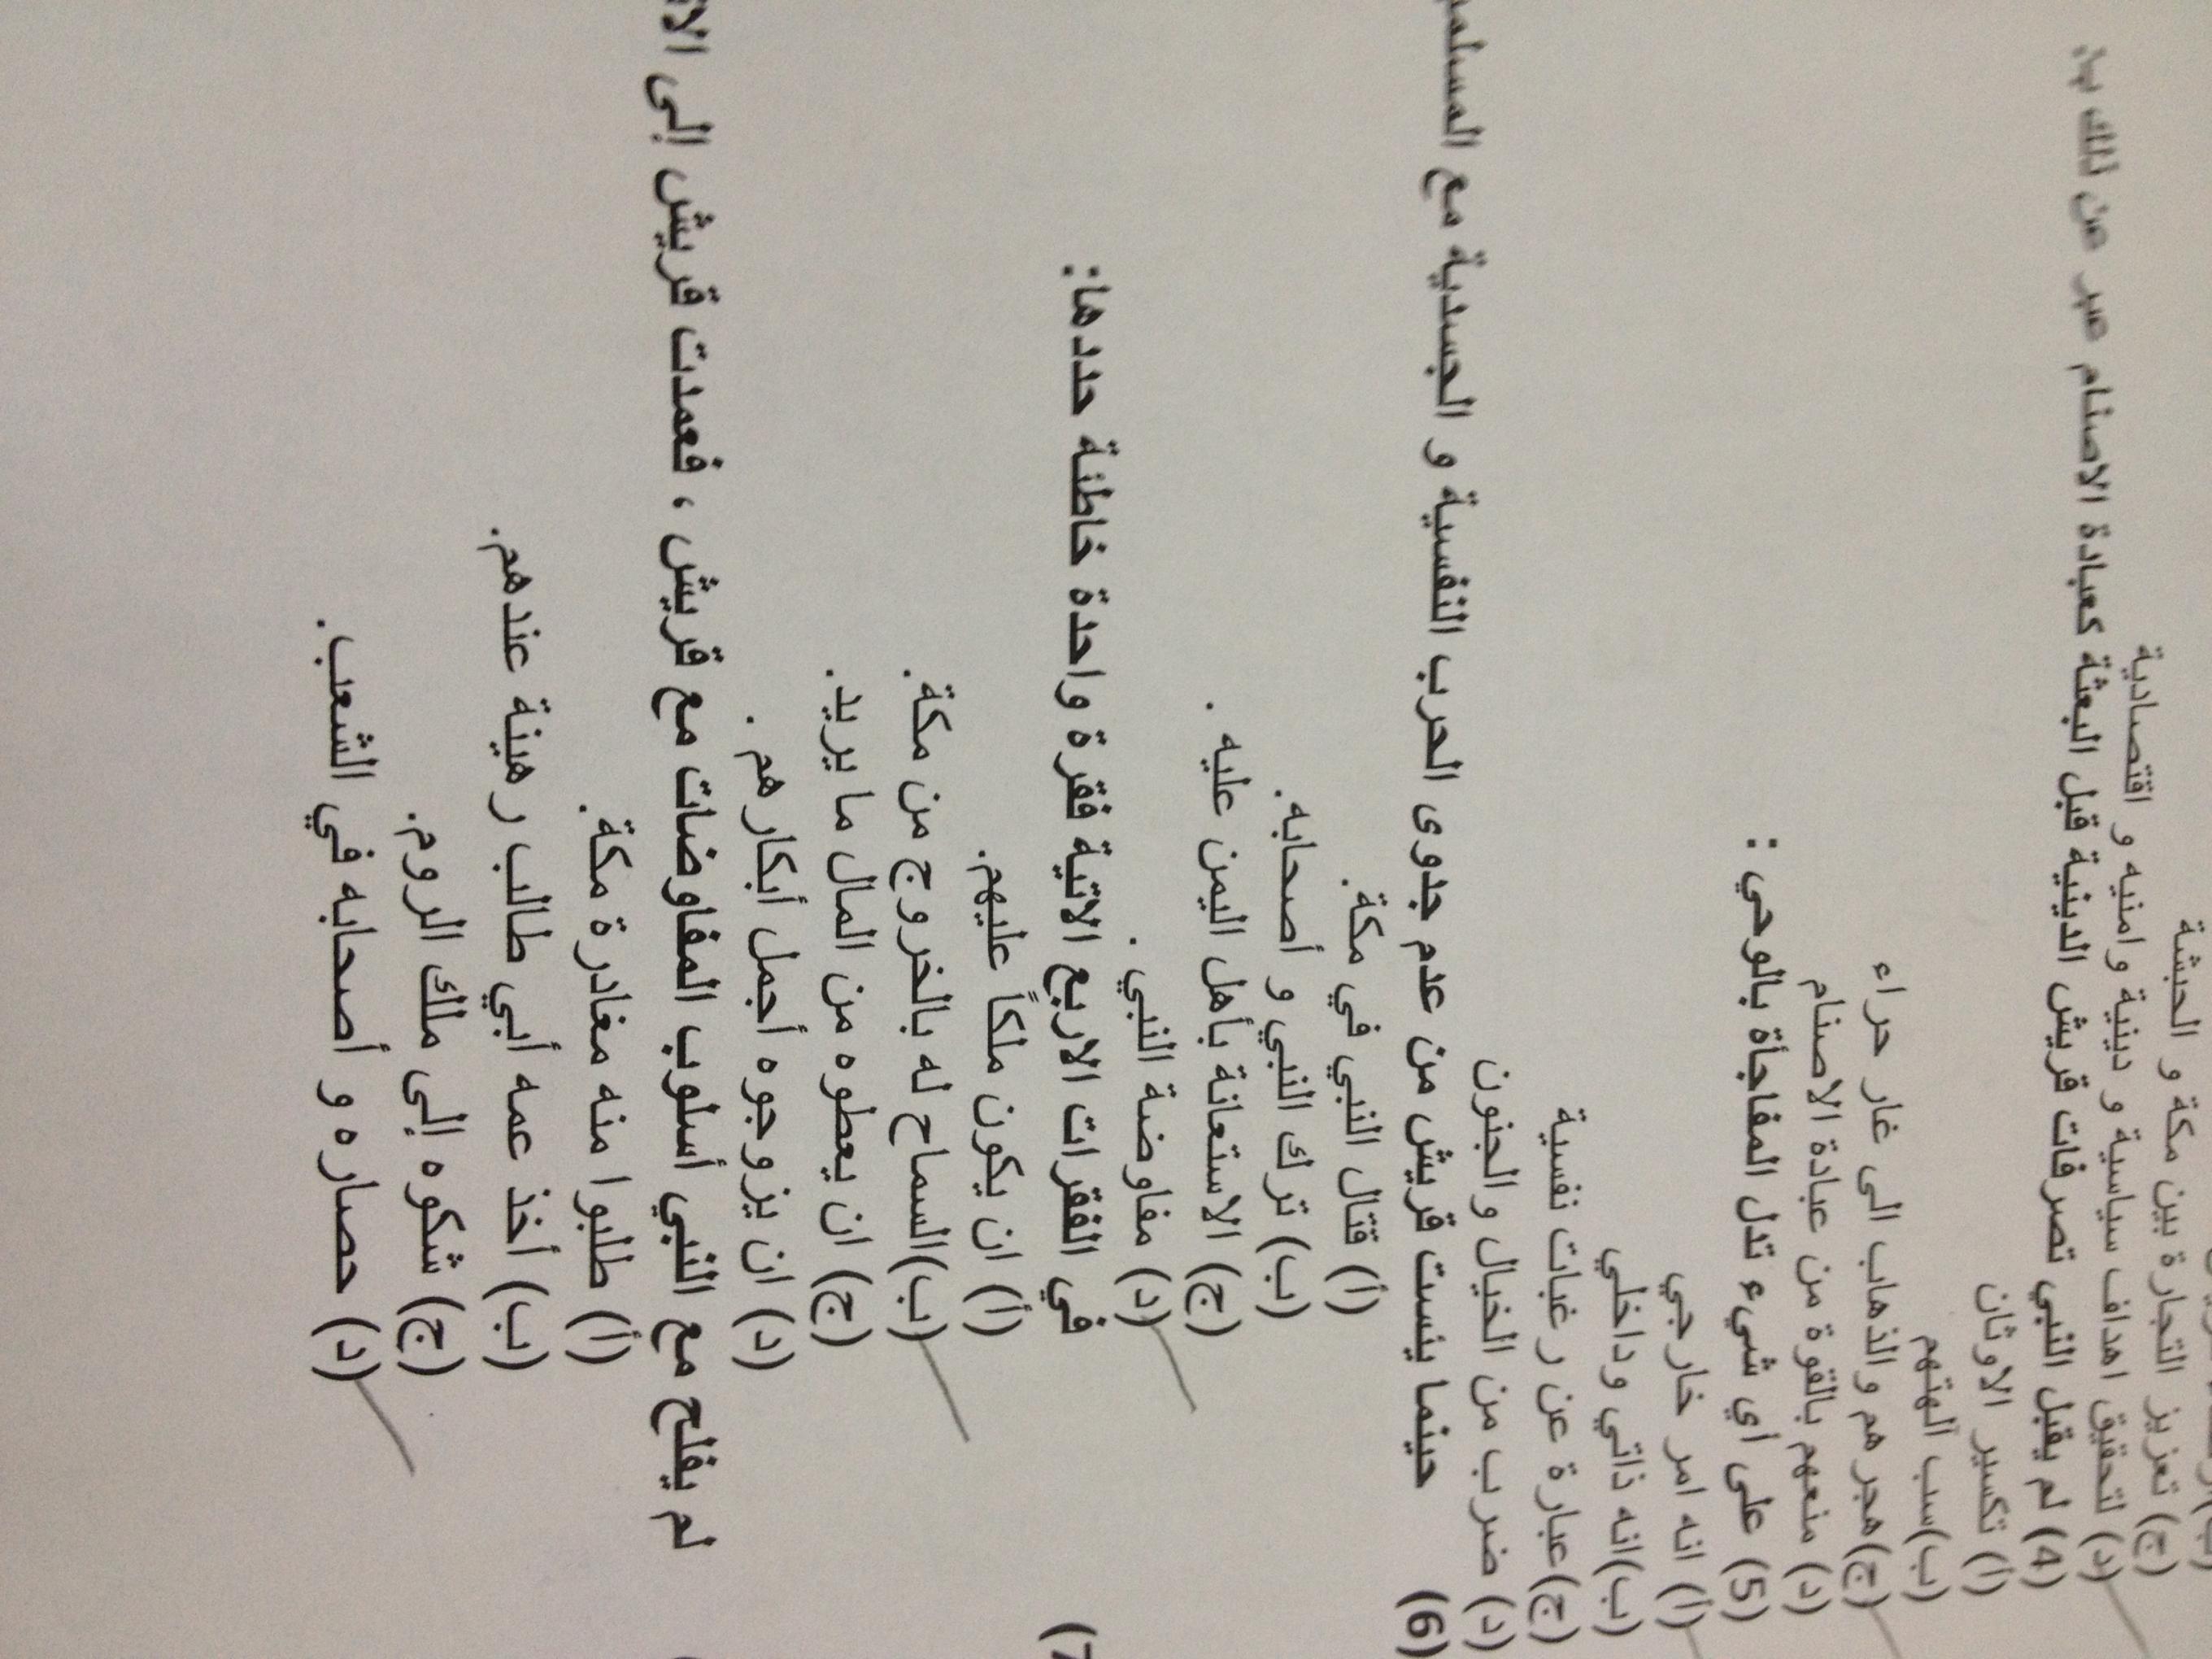 (ج) تعزيز التجارة بين مكة و الحبشة
(د) لتحقيق اهداف سياسية و دينية وامنيه و اقتصادية
(4) لم يقبل النبي تصرفات قريش الدينية قبل البعثة كعبادة الاصنام عبر عن ذلك بهذ
(أ) تكسير الاوثان
(ب)سب آلهتهم
(ج)هجرهم والذهاب الى غار حراء
(د) منعهم بالقوة من عبادة الاصنام
(5) على أي شيء تدل المفاجأة بالوحي :
(أ) انه امر خارجي
(ب)انه ذاتي وداخلي
(ج)عبارة عن رغبات نفسية
(د) ضرب من الخيال والجنون
(6) حينما يئست قريش من عدم جدوى الحرب النفسية و الجسدية مع المسلمي
(أ) قتال النبي في مكة.
(ب) ترك النبي و أصحابه.
(ج) الاستعانة بأهل اليمن عليه .
(د) مفاوضة النبي .
(7 في الفقرات الاربع الاتية فقرة واحدة خاطئة حددها:
(أ) ان يكون ملكاً عليهم.
(ب)السماح له بالخروج من مكة.
(ج) ان يعطوه من المال ما يريد.
(د) ان يزوجوه أجمل أبكارهم .
لم يفلح مع النبي أسلوب المفاوضات مع قريش ، فعمدت قريش إلى الا
(أ) طلبوا منه مغادرة مكة.
(ب) أخذ عمه أبي طالب رهينة عندهم.
(ج) شكوه إلى ملك الروم.
(د) حصاره و أصحابه في الشعب.